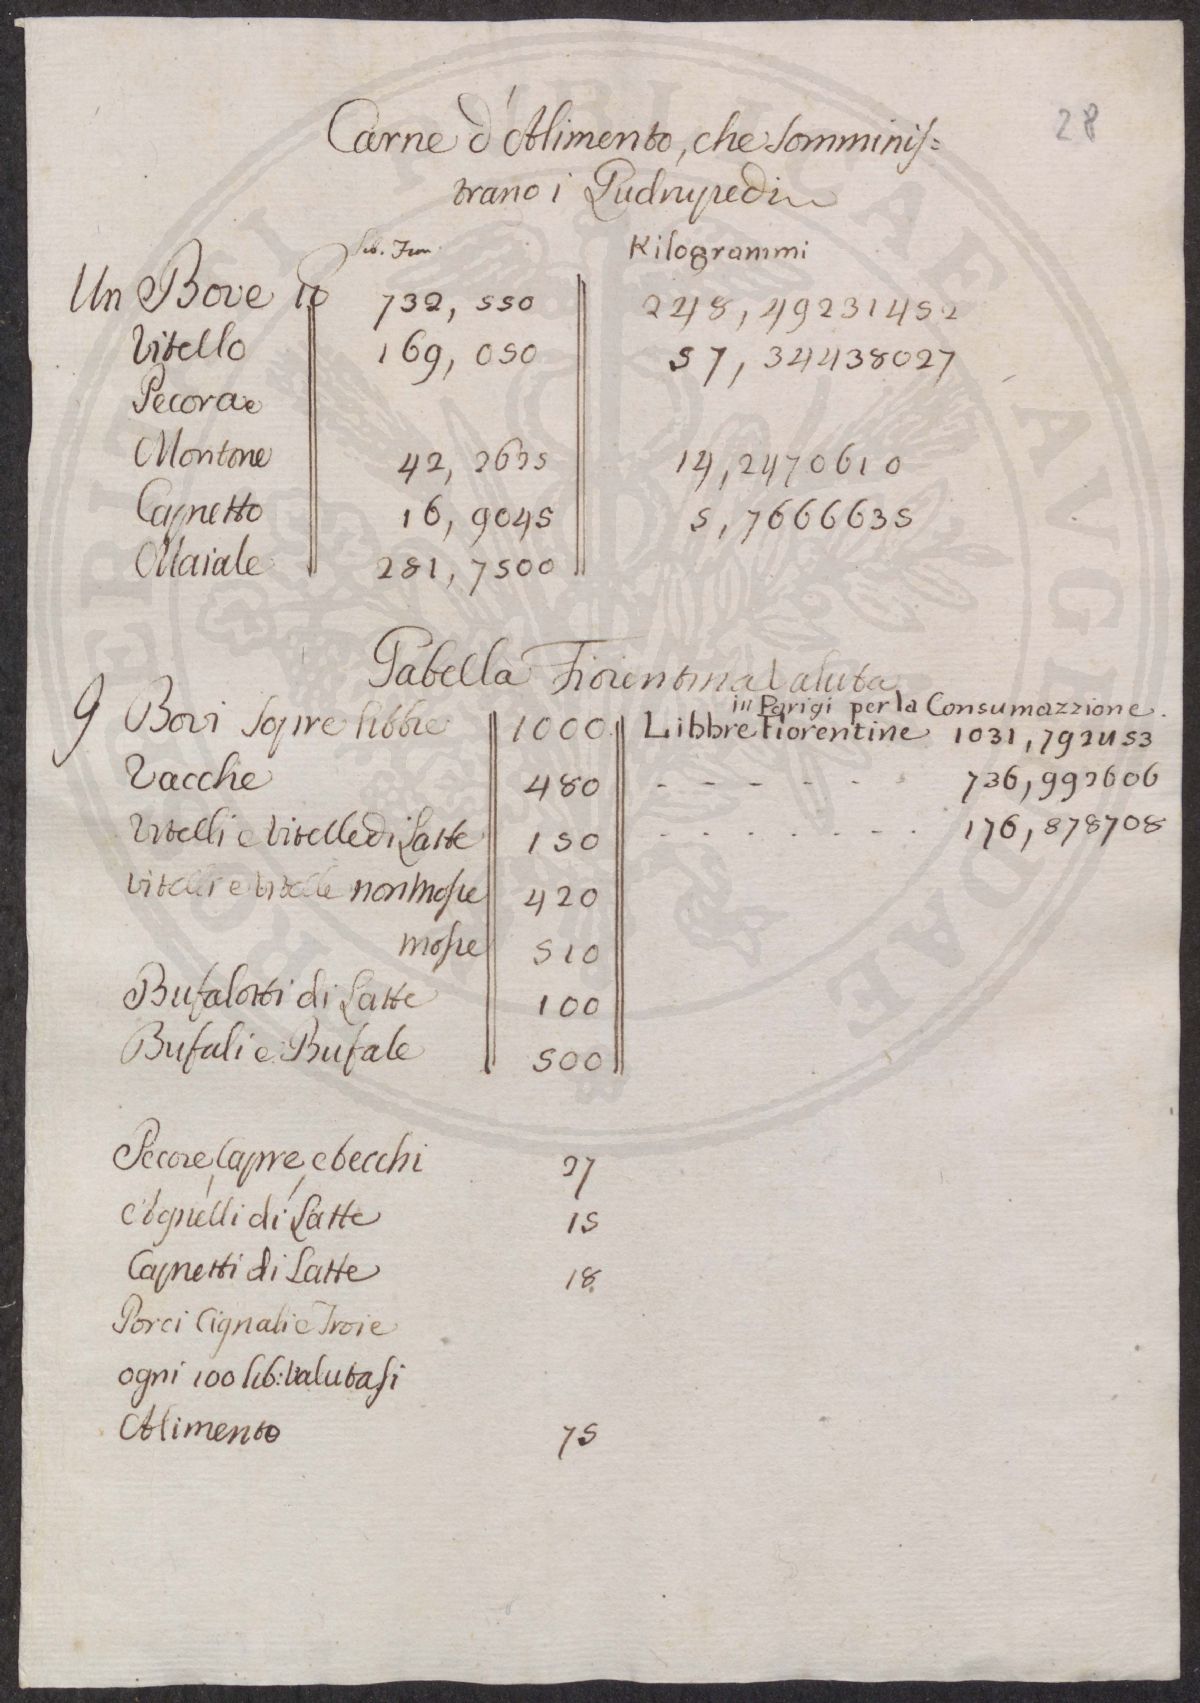 28
Carne d'Alimento, che somminis=
trano i Qudrupedi
Lib. Fior.
Kilogrammi
Un Bove 732, 550 248, 49231452
Vitello 169, 050 57, 34438027
Pecora e
Montone 42, 2625 14, 2470610
Capretto 16, 9045 5, 7666635
Maiale 281, 7500
Tabella Fiorentina valuta
in Parigi per la Consumazzione.
9 Bovi sopre libbre 1000 Libbre Fiorentine 1031, 792453
Vacche 480 - - - - - - 736, 992606
Vitelli e Vitelle di Latte 150 - - - - - - - 176, 878708
Vitelli e Vitelle non Mosse 420
mosse 510
Bufalotti di Latte 100
Bufali e Bufale 500
Pecore, Capre, e becchi 27
Agnelli di Latte 15
Capretti di Latte 18.
Porci Cignali e Troie
ogni 100 lib: valutasi
Alimento 75